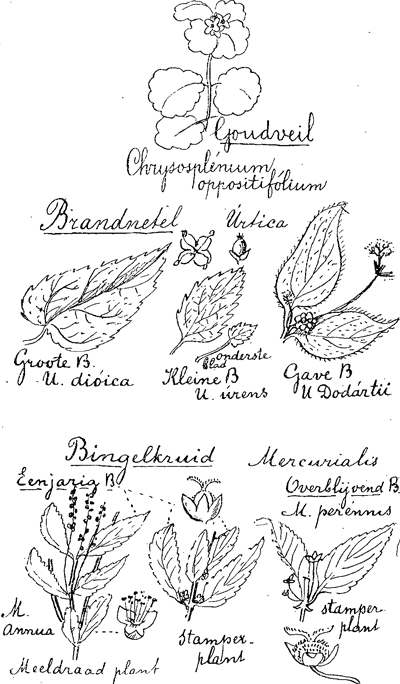 Goudveil
Chrysosplénium
oppositifólium
Brandnetel Úrtica
Groote B.
U. dióica
onderste
blad
Kleine B
U. úrens
Gave B
U Dodártii
Bingelkruid Mercurialis
Eenjarig B.
Overblijvend B.
M. perennis
M.
Annua
Meeldraad plant
Stamper-
plant
stamper
plant